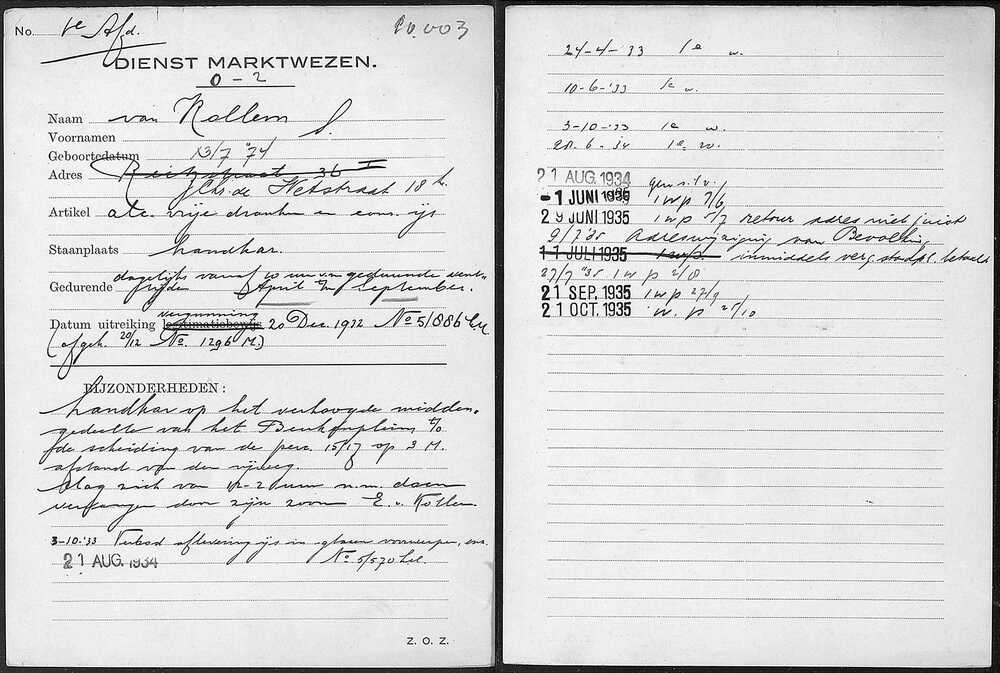 No. 1e Afd.
DIENST MARKTWEZEN.
0 - 2
Naam van Kollem S.
Voornamen
Geboortedatum 13/7 '74
Adres Reitzstraat 36 I
J. Chr. de Wetstraat 18 h.
Artikel alc. vrije dranken en cons. ijs
Staanplaats handkar.
dagelijks vanaf 10 uur v.m. gedurende
Gedurende April t/m September.
vergunning
Datum uitreiking legitimatiebewijs 20 Dec. 1932 No 5/886 L.M.
(afgeh. 20/12 No. 1296 M.)
BIJZONDERHEDEN:
handkar op het verhoogde midden-
gedeelte van het Beukenplein t/o
de scheiding van de perc. 15/17 op 3 M.
afstand van den rijweg.
Mag zich van 12-2 uur n.m. doen
vervangen door zijn zoon E. v. Kollem
3-10-'33 Verbod aflevering ijs in glazen voorwerpen, enz.
21 AUG. 1934 No 5/570 L.M.
Z. O. Z.
24-4-'33 1e w.
10-6-'33 1e w.
3-10-'33 1e w.
20-6-'34 1e w.
21 AUG. 1934
-1 JUNI 1935 1 w p 7/6
29 JUNI 1935 1 w p 5/7 retour adres niet juist
9/7 '35 Adreswijziging van Bevolking
11 JULI 1935 1 w p. inmiddels verg. staanpl. betaald
27/7 '35 1 w p 2/8
21 SEP. 1935 1 w p 27/9
21 OCT. 1935 w. p 25/10